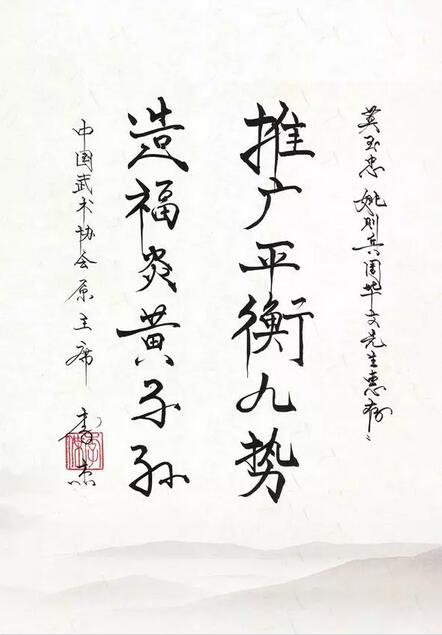 英玉忠 姚则兵 周华文先生惠存
推广平衡九势
造福炎黄子孙
中国武术协会原主席 李杰